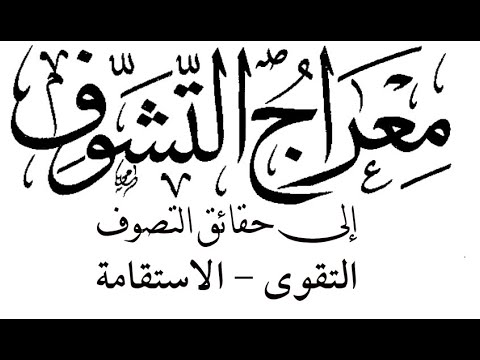 مِعْرَاجُ التَّشَوُّفِ
إلى حقائق التصوف
التقوى – الاستقامة